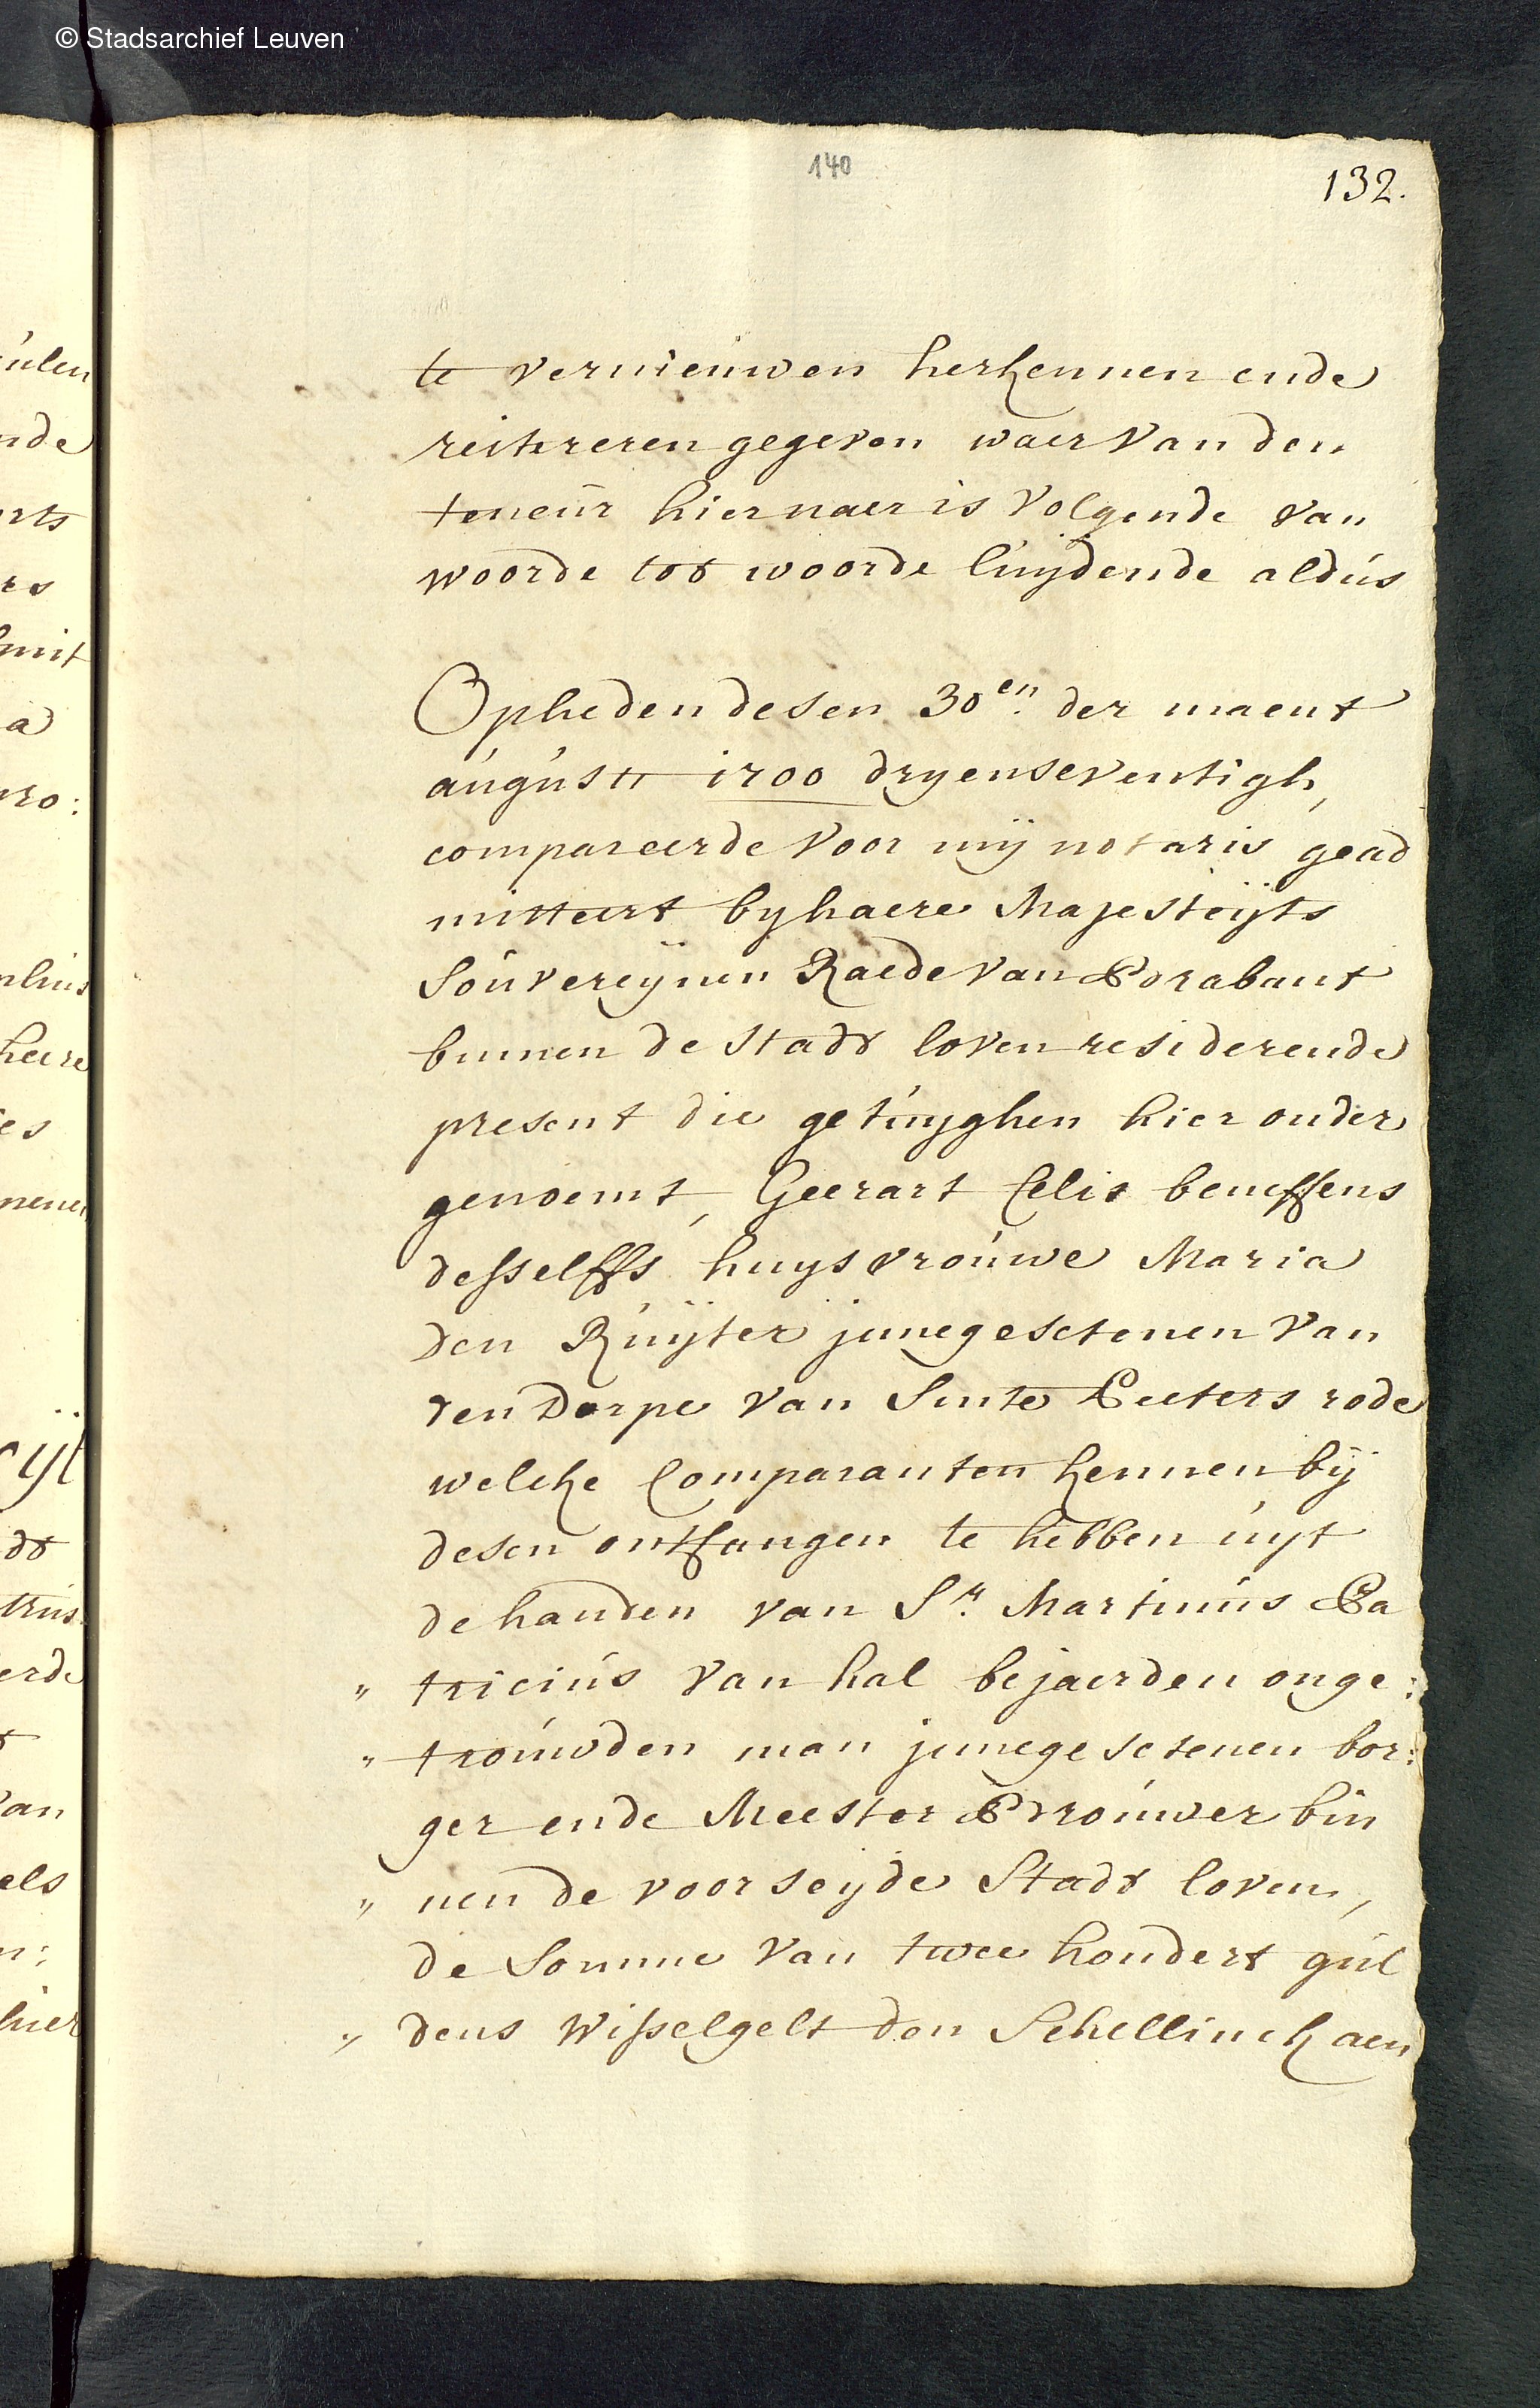 © Stadsarchief Leuven
140
132.
te vernieuwen herkennen ende
reitereren gegeven waer van den
teneur hier naer is volgende van
woorde tot woorde luijdende aldus
Opheden desen 30en. der maent
augusti 1700 dryenseventigh,
compareerde voor mij notaris gead
mitteert by haere Majesteijts
Souvereijnen Raede van Brabant
binnen de stadt loven residerende
present die getuyghen hier onder
genoemt, Geerart Celis beneffens
desselffs huysvrouwe Maria
den Ruijter innegesetenen van
den Dorpe van Sinte Peeters rode
welcke Comparanten kennen bij
desen ontfangen te hebben uyt
de handen van Sr. Martinus Pa
" tricius van hal bejaerden onge:
" trouwden man innegesetenen bor:
ger ende Meester Brouwer bin
" nen de voorseijde Stadt loven,
de Somme van twee hondert gul
" dens wisselgelt den Schellinck aen
ulen
nde
rts
es
a
ro:
heere
es
ijt
dt
trus
erde
t
van
els
n:
hier